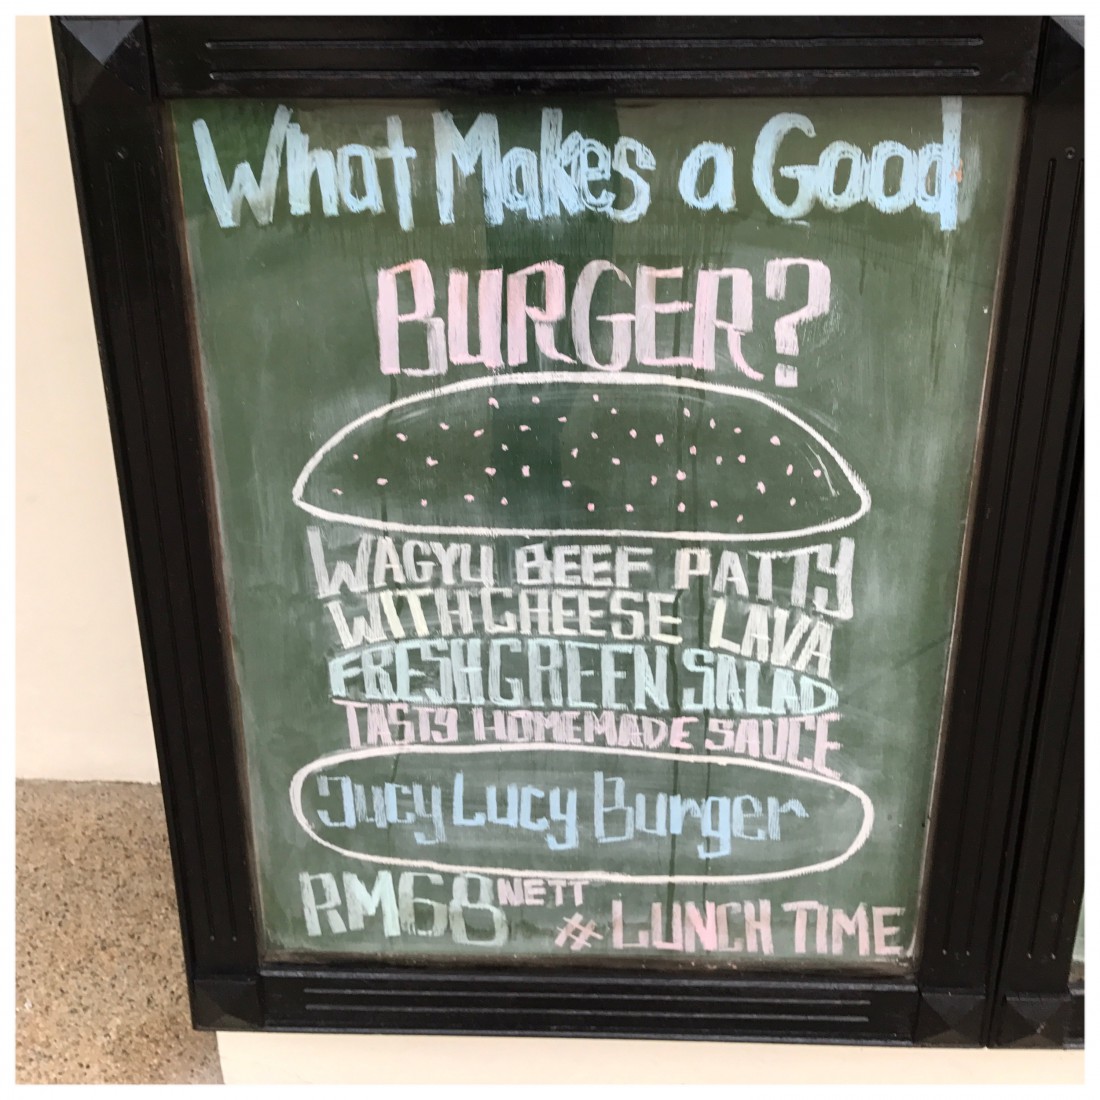 What Makes a Good
BURGER?
WAGYU BEEF PATTY
WITH CHEESE LAVA
FRESH GREEN SALAD
TASTY HOMEMADE SAUCE
Jucy Lucy Burger
RM68 NETT
# LUNCH TIME